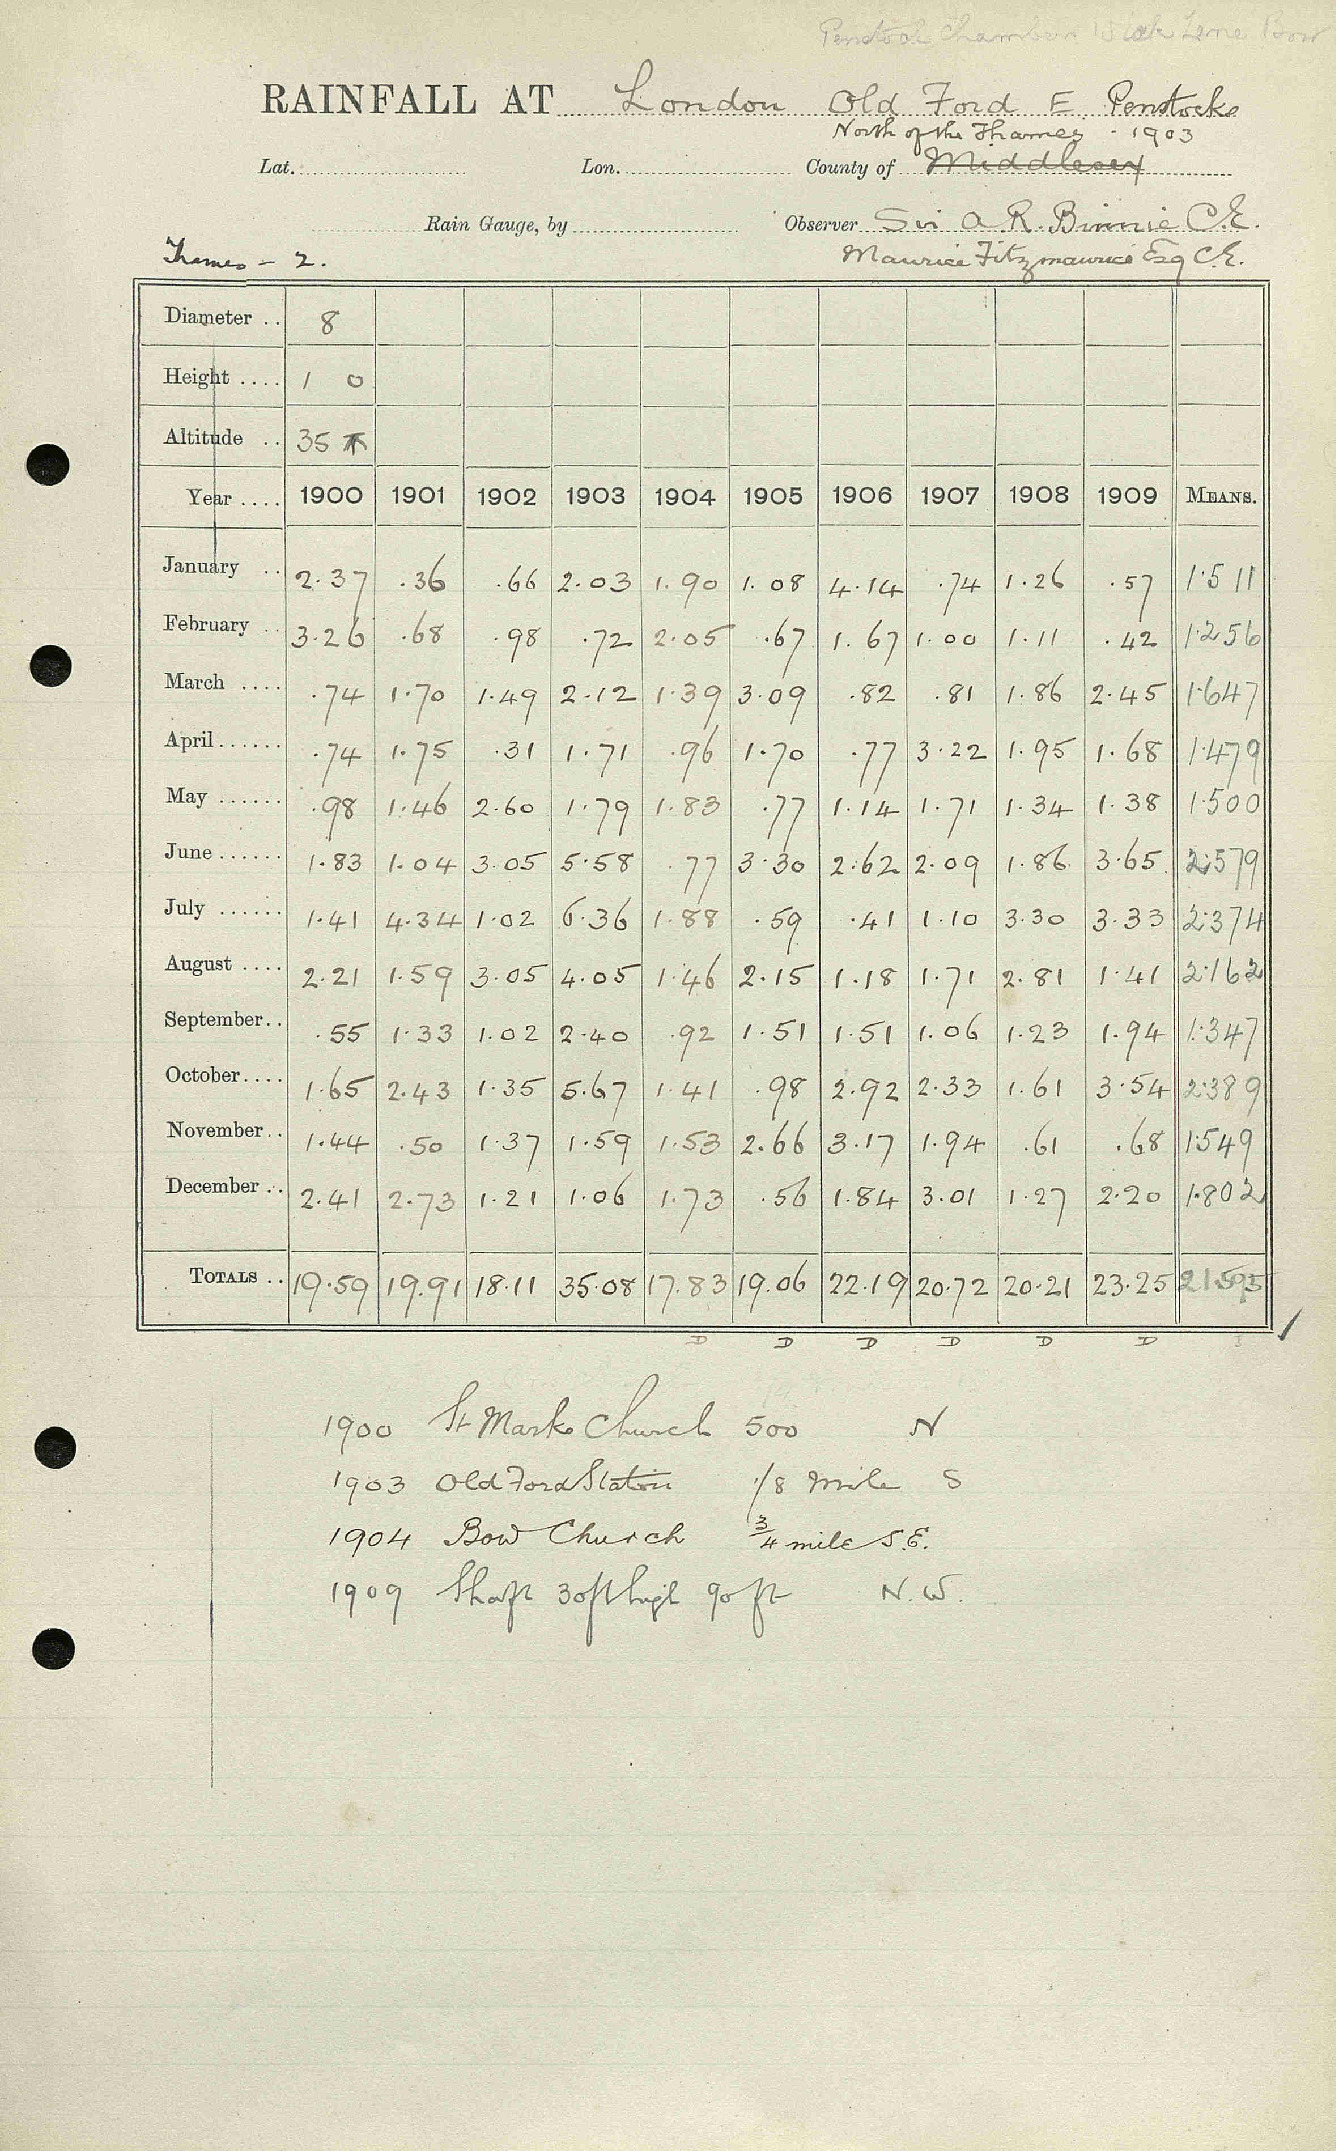 Penstock Chambers Wick Lane Bow
RAINFALL AT London Old Ford E. Penstocks
North of the Thames - 1903
Lat. Lon. County of Middlesex
Rain Gauge, by Observer Sir A. R. Binnie C.E.
Thames - 2. Maurice Fitzmaurice Esq C.E.
Diameter .. 8
Height .... 1 0
Altitude .. 35
Year .... 1900 1901 1902 1903 1904 1905 1906 1907 1908 1909 MEANS.
January .. 2.37 .36 .66 2.03 1.90 1.08 4.14 .74 1.26 .57 1.511
February .. 3.26 .68 .98 .72 2.05 .67 1.67 1.00 1.11 .42 1.256
March .... .74 1.70 1.49 2.12 1.39 3.09 .82 .81 1.86 2.45 1.647
April ...... .74 1.75 .31 1.71 .96 1.70 .77 3.22 1.95 1.68 1.479
May ...... .98 1.46 2.60 1.79 1.83 .77 1.14 1.71 1.34 1.38 1.500
June ...... 1.83 1.04 3.05 5.58 .77 3.30 2.62 2.09 1.86 3.65 2.579
July ...... 1.41 4.34 1.02 6.36 1.88 .59 .41 1.10 3.30 3.33 2.374
August .... 2.21 1.59 3.05 4.05 1.46 2.15 1.18 1.71 2.81 1.41 2.162
September.. .55 1.33 1.02 2.40 .92 1.51 1.51 1.06 1.23 1.94 1.347
October.... 1.65 2.43 1.35 5.67 1.41 .98 2.92 2.33 1.61 3.54 2.389
November.. 1.44 .50 1.37 1.59 1.53 2.66 3.17 1.94 .61 .68 1.549
December .. 2.41 2.73 1.21 1.06 1.73 .56 1.84 3.01 1.27 2.20 1.802
TOTALS .. 19.59 19.91 18.11 35.08 17.83 19.06 22.19 20.72 20.21 23.25 21.595
D D D D D D
1900 St Marks Church 500 N
1903 Old Ford Station 1/8 Mile S
1904 Bow Church 3/4 mile S.E.
1909 Shaft 30ft high 90 ft N.W.